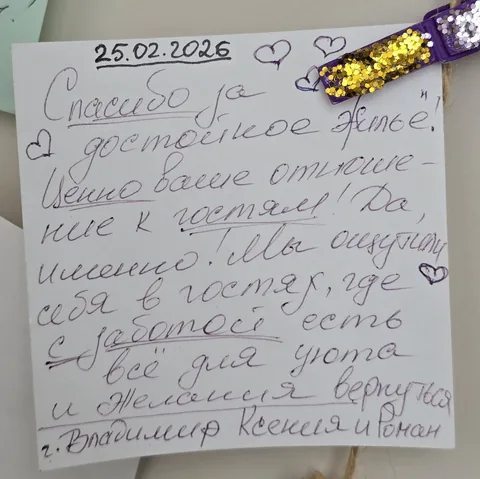 25.02.2026
Спасибо за
достойное жильё!
Ценно ваше отноше-
ние к гостям! Да,
именно! Мы ощутили
себя в гостях, где
с заботой есть
всё для уюта
и желания вернуться
г. Владимир Ксения и Роман